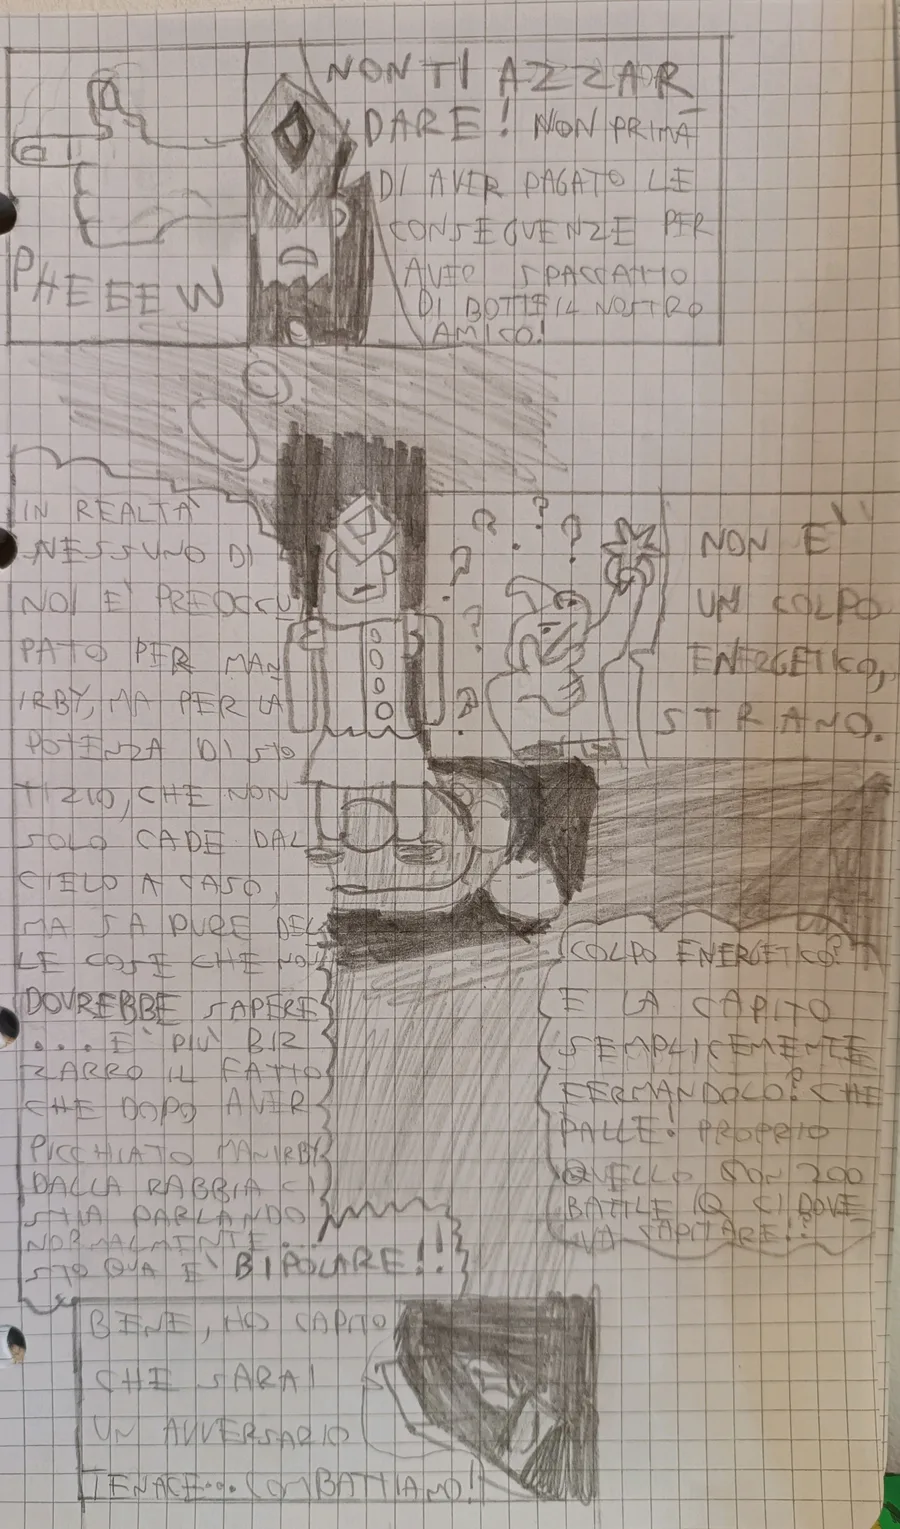 NON TI AZZAR
DARE! NON PRIMA
DI AVER PAGATO LE
CONSEQUENZE PER
AVER SPACCATTO
DI BOTTE IL NOSTRO
AMICO!
PHEEEW
IN REALTÀ
NESSUNO DI
NOI E' PREOCCU
PATO PER MAN
IRBY, MA PER LA
POTENZA DI STO
TIZIO, CHE NON
SOLO CADE DAL
CIELO A CASO,
MA SA PURE DEL
LE COSE CHE NON
DOVREBBE SAPERE
.... E' PIÙ BIZ
ZARRO IL FATTO
CHE DOPO AVER
PICCHIATO MANIRBY
DALLA RABBIA CI
STIA PARLANDO
NORMALMENTE...
STO QUA E' BIPOLARE!!
? ? ? ? ? ?
NON E'
UN COLPO
ENERGETICO,
STRANO.
COLPO ENERGETICO?
E LA CAPITO
SEMPLICEMENTE
FERMANDOLO? CHE
PALLE! PROPRIO
QUELLO CON 200
BATTLE IQ CI DOVE
VA CAPITARE!?
BENE, HO CAPITO
CHE SARAI
UN AVVERSARIO
TENACE... COMBATTIAMO!